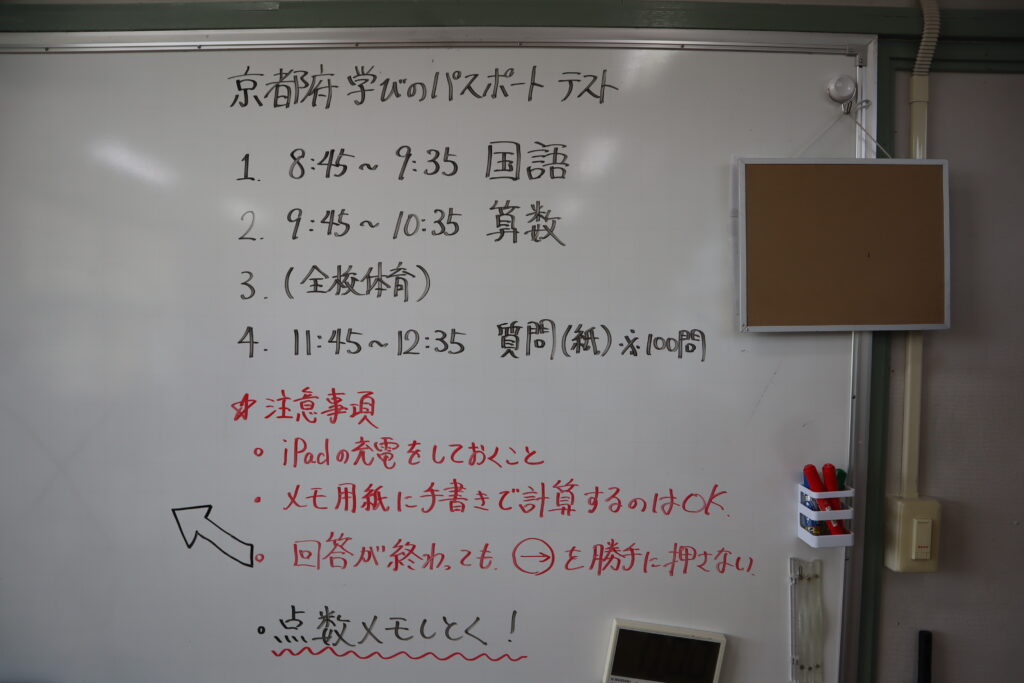 京都府 学びのパスポート テスト
1. 8:45～9:35 国語
2. 9:45～10:35 算数
3. (全校体育)
4. 11:45～12:35 質問(紙) ※100問
☆注意事項
・iPadの充電をしておくこと
・メモ用紙に手書きで計算するのはOK.
・回答が終わっても、→を勝手に押さない.
・点数メモしとく！